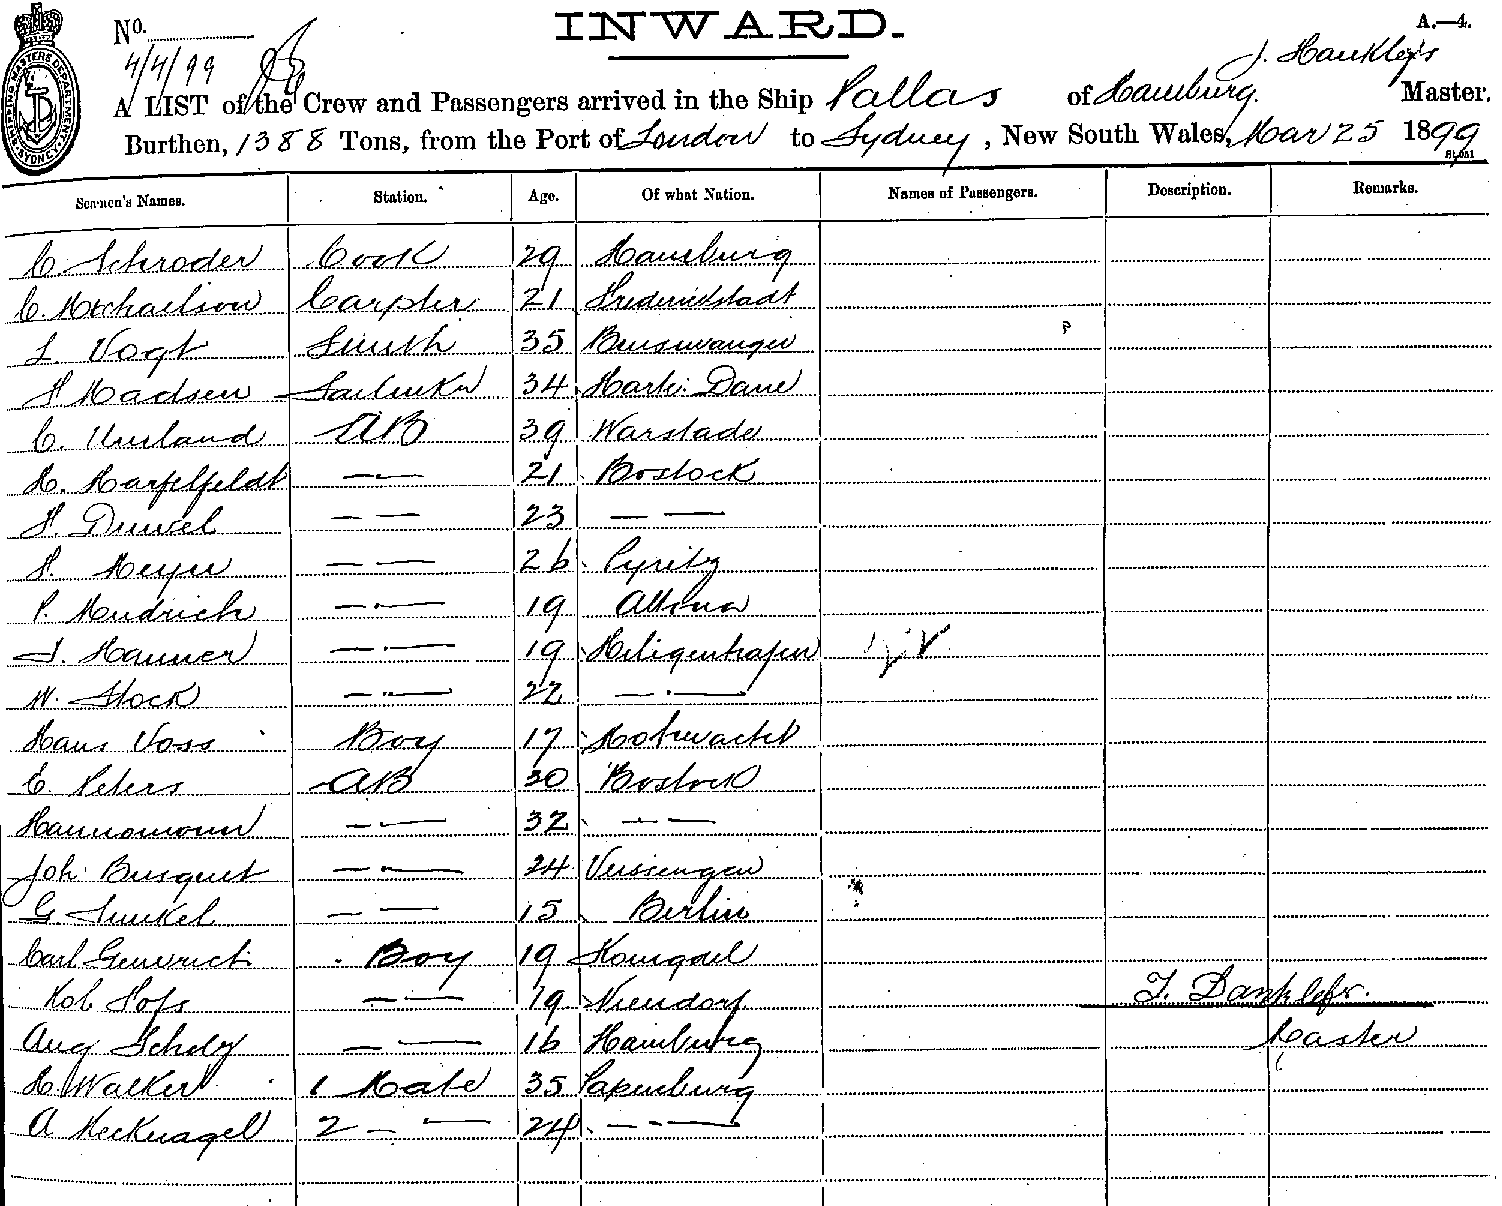 No.
INWARD.
A.—4.
4/4/99
SHIPPING MASTERS DEPARTMENT SYDNEY
A LIST of the Crew and Passengers arrived in the Ship Pallas of Hamburg. Master.
Burthen, 1388 Tons, from the Port of London to Sydney, New South Wales, Mar 25 1899
Seamen's Names. Station. Age. Of what Nation. Names of Passengers. Description. Remarks.
C Schroder Cook 29 Hamburg
C. Mechaelson Carpter 21 Frederickstadt
L Vogt Smith 35
H Madsen Sailmkr 34 Dane
C. Umland AB 39 Warstade
H. — · — 21 Rostock
H. Duwel — — 23 — —
H. Meyer — — 26 Pyritz
P. — · — 19 Altona
J. Hanner — · — 19 Heiligenhafen
W. Stock — · — 22 — · —
Hans Voss Boy 17
C. Peters AB 30 Rostock
Hannemann — · — 32 — · —
Joh. Busquet — · — 24
G — — 15 Berlin
Carl Boy 19
— — 19 Niendorf
Aug — — 16 Hamburg
H. Walker 1 Mate 35 Papenburg
A Recknagel 2 — — 24 — · —
J. Danklefs.
Master